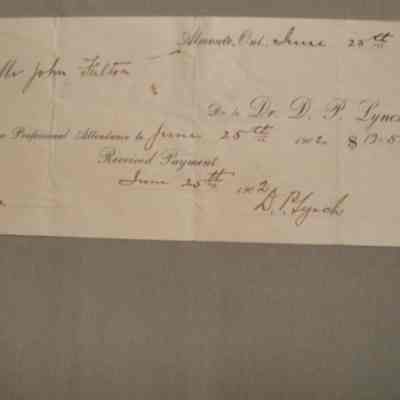 Almonte, Ont. June 25th
Mr John Fulton
Dr. to Dr. D. P. Lynch
Professional Attendance to June 25th 1902 $
Received Payment
June 25th 1902
D. P. Lynch